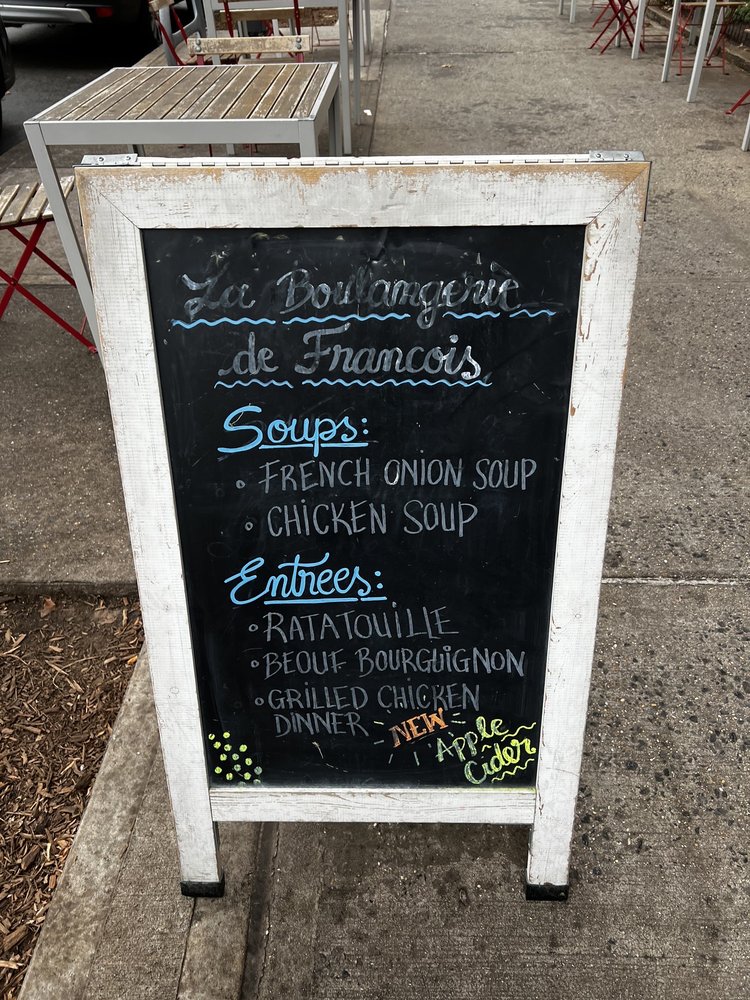 La Boulangerie
de Francois
Soups:
• FRENCH ONION SOUP
• CHICKEN SOUP
Entrees:
• RATATOUILLE
• BEOUF BOURGUIGNON
• GRILLED CHICKEN
DINNER
NEW
Apple
Cider